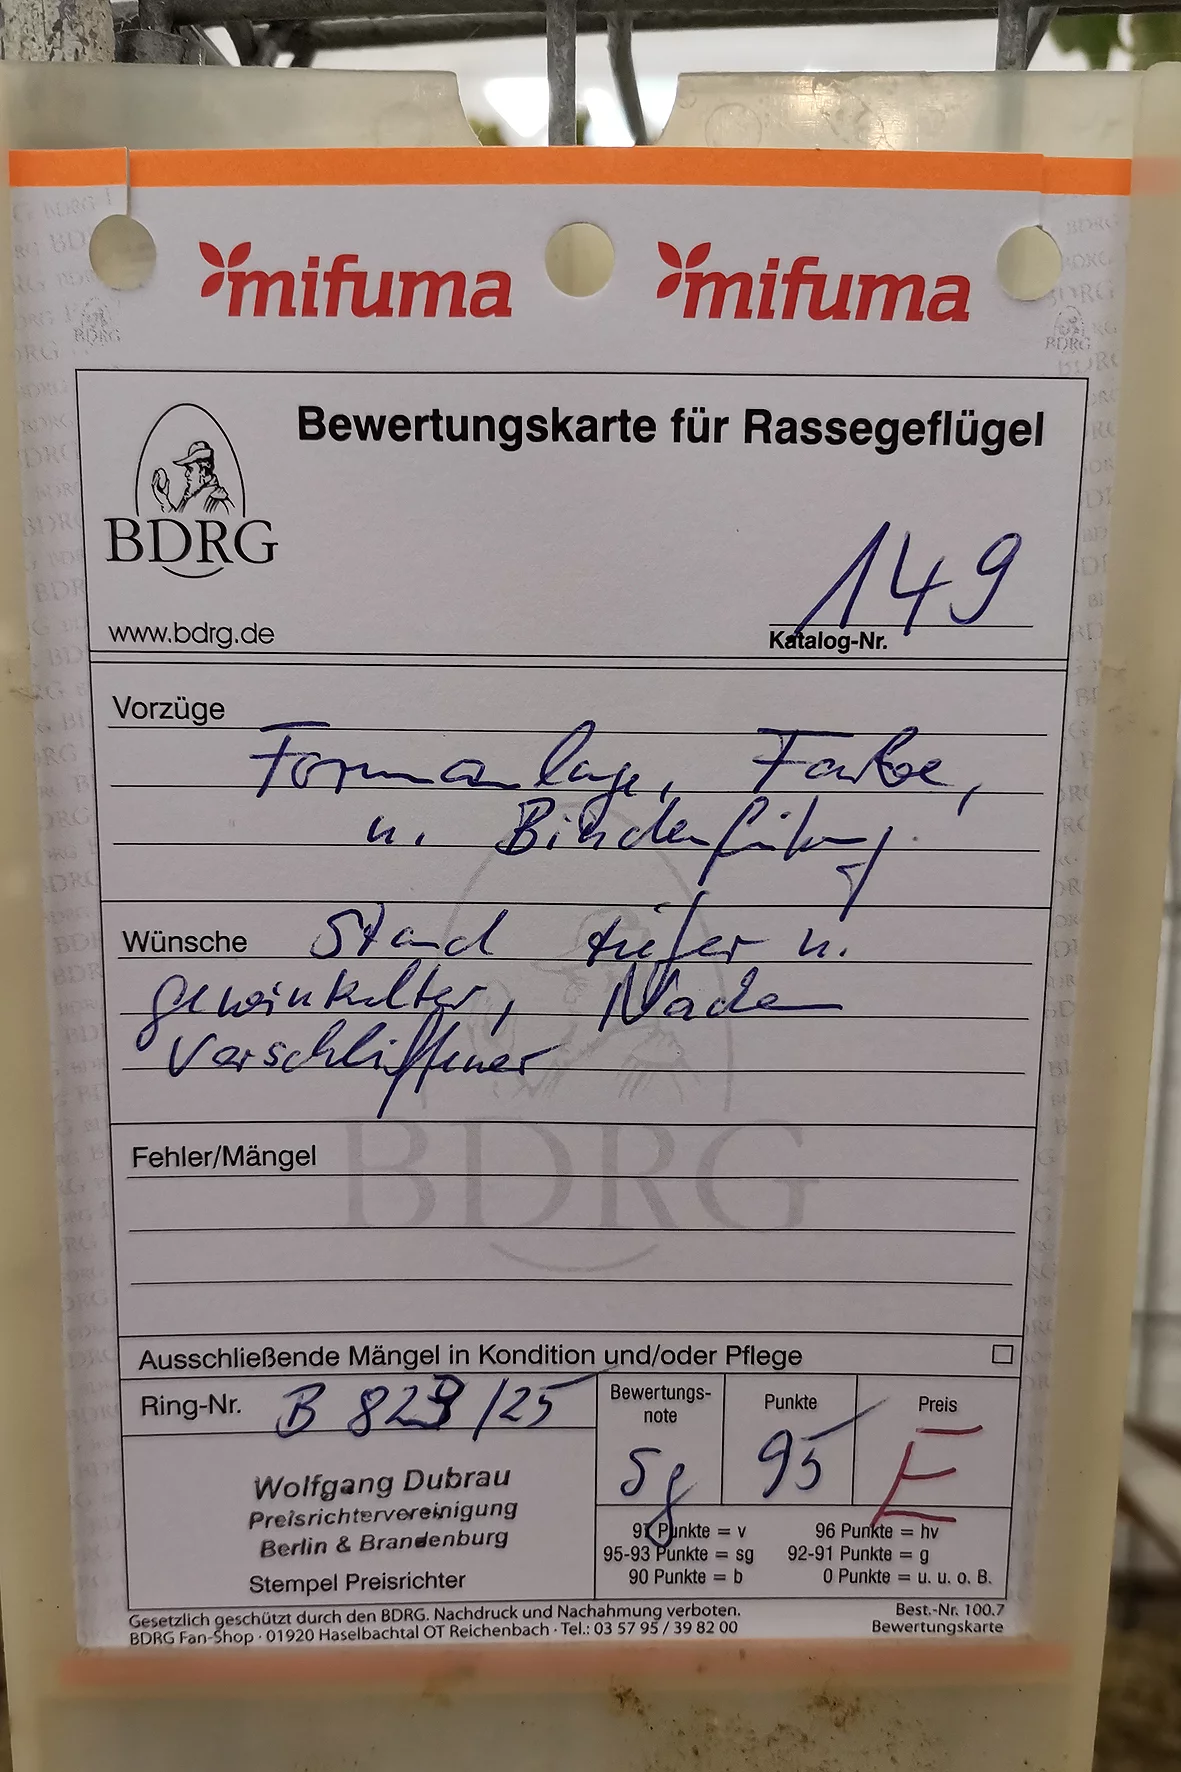 mifuma mifuma
Bewertungskarte für Rassegeflügel
BDRG
149
www.bdrg.de
Katalog-Nr.
Vorzüge
Formanlage, Farbe,
u. Bindenführung.
Wünsche Stand tiefer u.
gewinkelter, Nacken
verschliffener
BDRG
Fehler/Mängel
Ausschließende Mängel in Kondition und/oder Pflege
Ring-Nr. B 823/25
Bewertungs-
note
Sg
Punkte
95
Preis
E
Wolfgang Dubrau
Preisrichtervereinigung
Berlin & Brandenburg
Stempel Preisrichter
97 Punkte = v 96 Punkte = hv
95-93 Punkte = sg 92-91 Punkte = g
90 Punkte = b 0 Punkte = u. u. o. B.
Gesetzlich geschützt durch den BDRG. Nachdruck und Nachahmung verboten. Best.-Nr. 100.7
BDRG Fan-Shop · 01920 Haselbachtal OT Reichenbach · Tel.: 03 57 95 / 39 82 00 Bewertungskarte